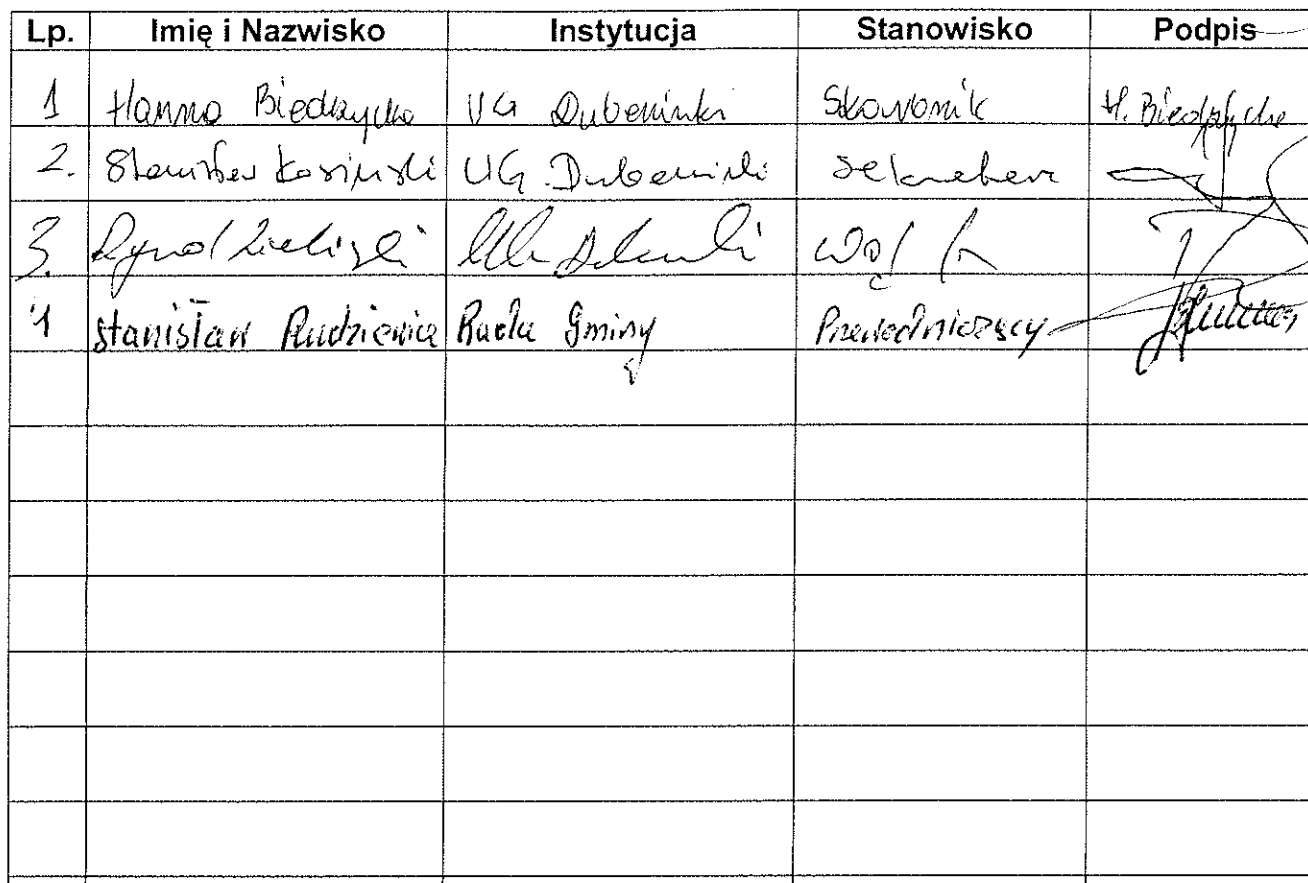 Lp. Imię i Nazwisko Instytucja Stanowisko Podpis
1 Hanna Biedrzycka UG Dubeninki Skarbnik H. Biedrzycka
2. Stanisław Kosiński UG Dubeninki sekretarz
3. Ryszard Zieliński UG Dubeninki Wójt
4 Stanisław Rudziewicz Rada Gminy Przewodniczący